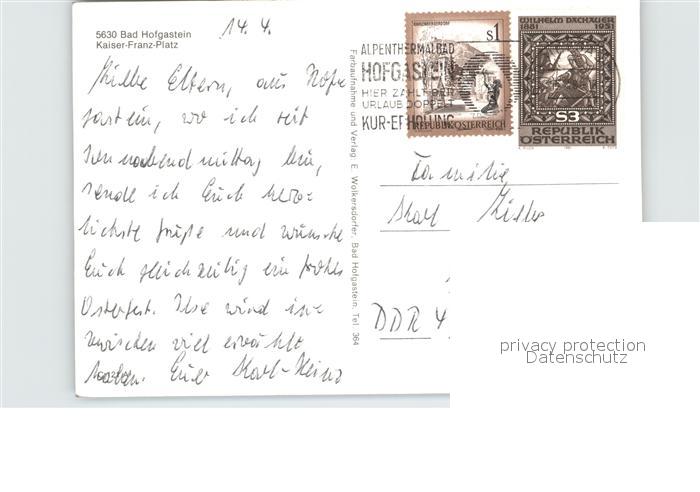 5630 Bad Hofgastein
Kaiser-Franz-Platz
14. 4.
Eltern, aus Hofga
gastein, wo ich seit
hin,
sende ich Euch herz-
lichste Grüße und wünsche
Euch gleichzeitig ein frohes
Osterfest. Ilse wird in-
zwischen viel erzählt
haben. Euer Karl-Heinz
Farbaufnahme und Verlag: E. Wolkersdorfer, Bad Hofgastein, Tel. 364
ALPENTHERMALBAD
HOFGASTEIN
HIER ZÄHLT DER
URLAUB DOPPELT
KUR-ERHOLUNG
S1
REPUBLIK ÖSTERREICH
WILHELM DACHAUER
1881 1951
S3
REPUBLIK
ÖSTERREICH
Familie
Karl
DDR 4
privacy protection
Datenschutz